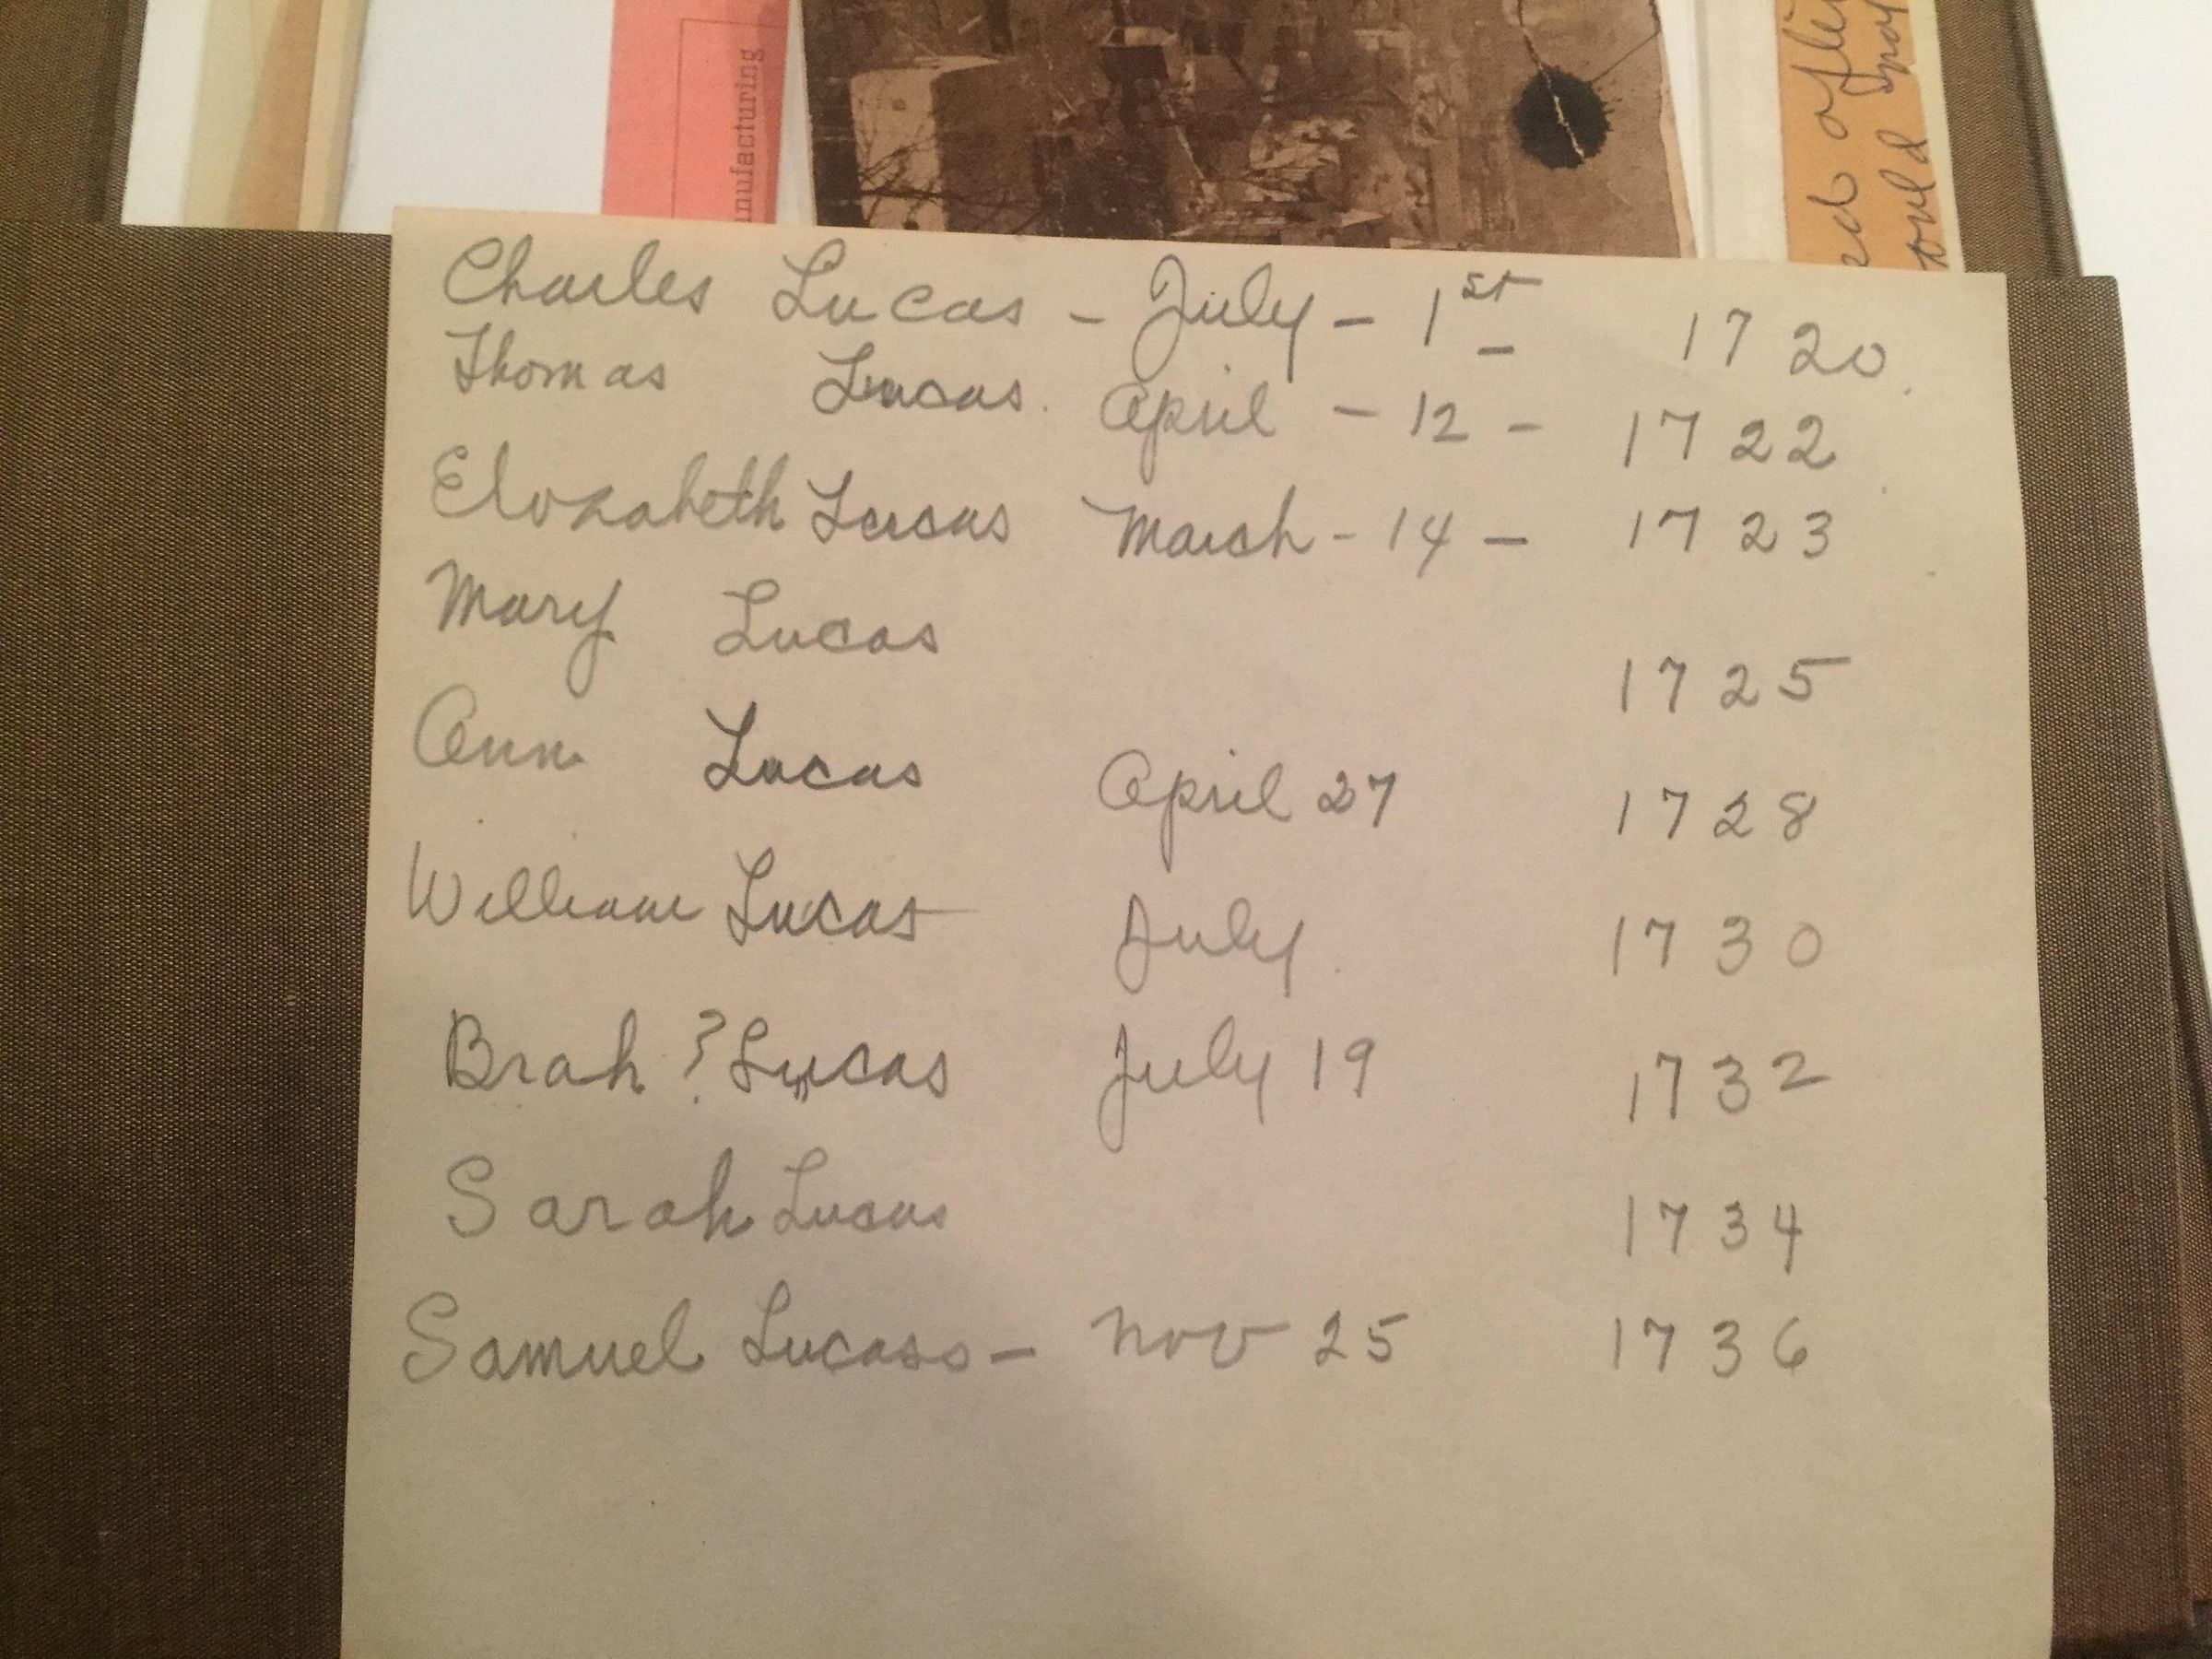 nufacturing
ed
ould
Charles Lucas - July - 1st - 1720.
Thomas Lucas. April - 12 - 1722
Elozabeth Lucas March - 14 - 1723
Mary Lucas 1725
Ann Lucas April 27 1728
William Lucas July. 1730
Brah ? Lucas July 19 1732
Sarah Lucas 1734
Samuel Lucass - Nov 25 1736